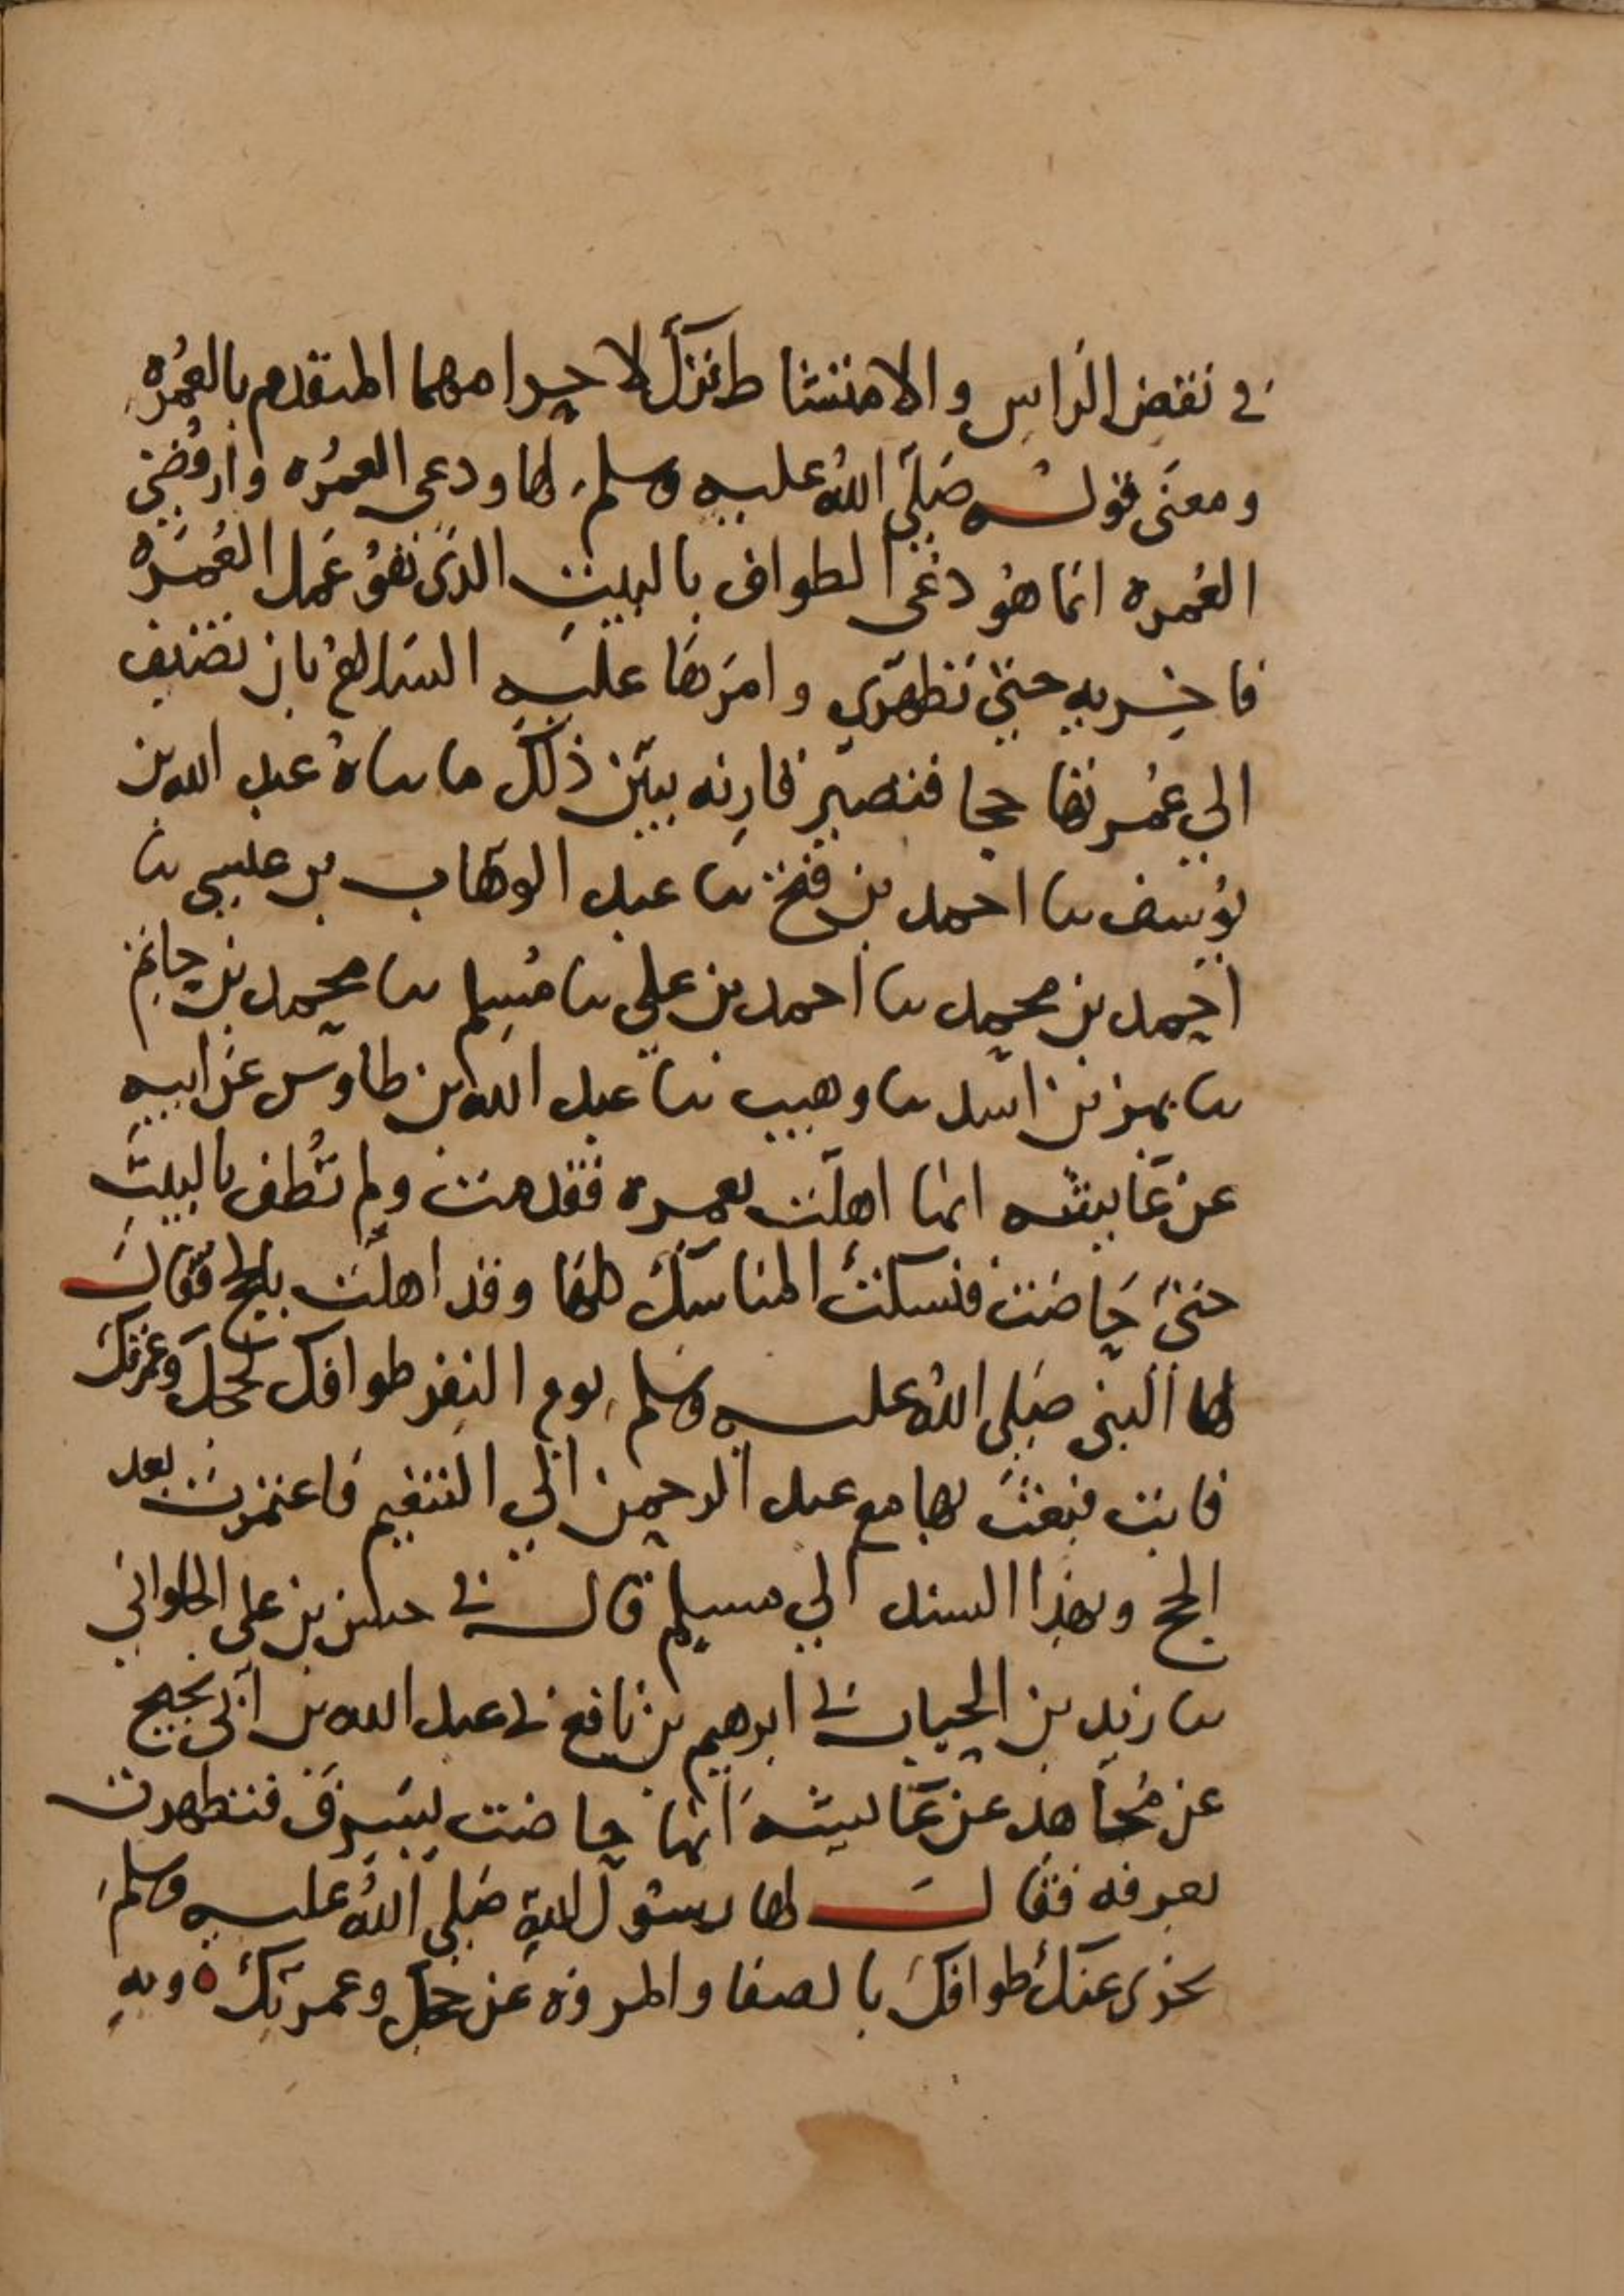 في نقض الراس والامتشاط تركا لاحرامهما المتقدم بالعمره
ومعنى قوله صلى الله عليه وسلم لها ودعي العمره وارفضي
العمره انما هو دعي الطواف بالبيت الذي هو عمل العمره
فاخريه حتى تطهري وامرها عليه السلام بان تضيف
الى عمرتها حجا فتصير قارنه يبين ذلك ما ساه عبد الله بن
يوسف سا احمد بن فتح سا عبد الوهاب بن عيسى سا
احمد بن محمد سا احمد بن علي سا مسلم سا محمد بن حاتم
سا بهز بن اسد سا وهيب سا عبد الله بن طاوس عن ابيه
عن عايشه انها اهلت بعمره فقدمت ولم تطف بالبيت
حتى حاضت فنسكت المناسك كلها وقد اهلت بالحج فقال
لها النبي صلى الله عليه وسلم يوم النفر طوافك لحجك وعمرتك
فابت فبعث بها مع عبد الرحمن الى التنعيم فاعتمرت بعد
الحج وبهذا السند الى مسلم قال ني حسن بن علي الحلواني
سا زيد بن الحباب ني ابرهيم بن نافع ني عبد الله بن ابي نجيح
عن مجاهد عن عايشه انها حاضت بسرف فتطهرت
بعرفه فقال لها رسول الله صلى الله عليه وسلم
يجزى عنك طوافك بالصفا والمروه عن حجك وعمرتك ه وبه